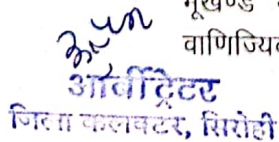 भूखण्ड
वाणिज्यि
आर्बीट्रेटर
जिला कलक्टर, सिरोही